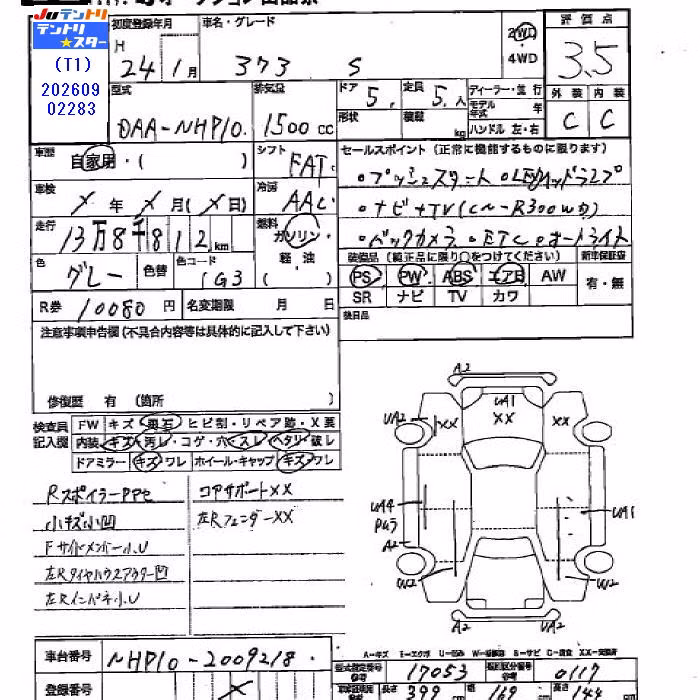 JUテントリ
テントリ
★スター
(T1)
202609
02283
初度登録年月
車名・グレード
H
24 1月
373 S
2WD
4WD
評価点
3.5
型式
DAA-NHP10.
排気量
1500cc
ドア
5.
定員
5.人
形状
積載
kg
ディーラー・並行
モデル年式
年
ハンドル 左・右
外装 内装
C C
車歴
自家用・( )
シフト
FAT.
セールスポイント (正常に機能するものに限ります)
。プッシュスタート 。LEDヘッドランプ
車検
X 年 X 月 (X 日)
冷房
AAC.
。ナビ+TV(CN-R300W
走行
13万8千812km
燃料
ガソリン・
軽・油
( )
。バックカメラ 。ETC 。オートライト
色
グレー
色替
色コード
1G3
装備品 (純正品に限り○をつけてください)
新車保証書
PS PW ABS エアB AW
SR ナビ TV カワ
有・無
R券 10080 円
名変期限 月 日
後日品
注意事項申告欄(不具合内容等は具体的に記入して下さい)
修復歴 有 (箇所 )
検査員
記入欄
FW キズ・飛石・ヒビ割・リペア跡・X要
内装・キズ・汚レ・コゲ・穴・スレ・ヘタリ・破レ
ドアミラー キズ・ワレ ホイール・キャップ キズ・ワレ
コアサポートXX
小キズ小凹
左RフェンダーXX
Fサイドメンバー小U
左Rタイヤハウスアウター凹
左Rインパネ小U
A2
UA1
XX
UA2
XX
XX
UA4
UA1
A2
W2
W2
A2
UA2
A-キズ E-エクボ U-凹み W-補修跡 S-サビ C-腐食 XX-交換済
車台番号
NHP10-2009218.
型式指定番号
17053
類別区分番号
0117
登録番号
X
長さ
399
幅
高さ